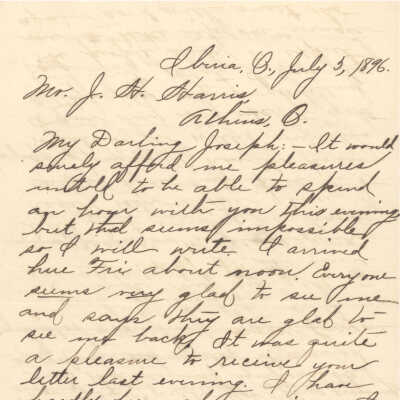 Iberia, O., July 3, 1896.
Mr. J. H. Harris,
Athens, O.
My Darling Joseph:— It would
surely afford me pleasures
untold to be able to spend
an hour with you this evening
but that seems impossible
so I will write. I arrived
here Fri about noon. Everyone
seems very glad to see me
and says they are glad to
see me back. It was quite
a pleasure to receive your
letter last evening. I have